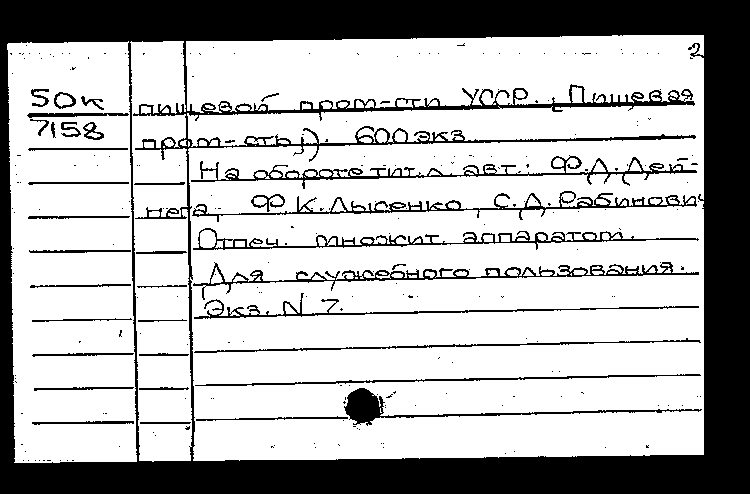 2
50к пищевой пром-сти УССР. [Пищевая
7158 пром-сть]). 600 экз.
На обороте тит. л. авт.: Ф.Д. Дей-
нега, Ф.К. Лысенко, С.Д. Рабинович
Отпеч. множит. аппаратом.
Для служебного пользования.
Экз. N 7.